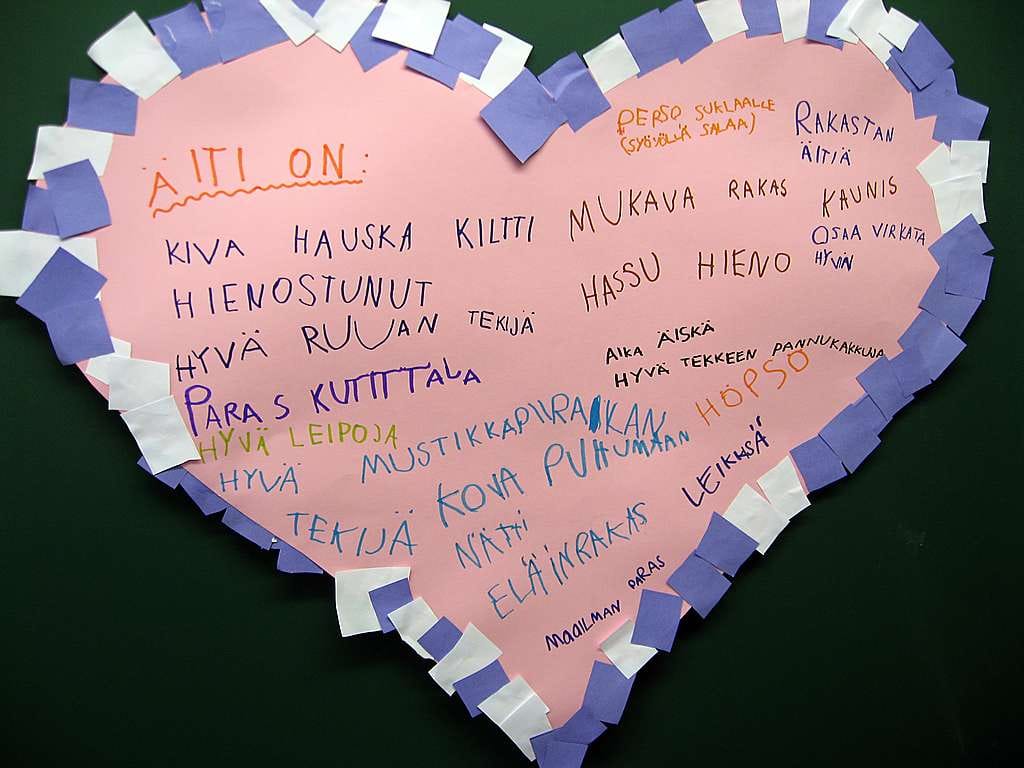 ÄITI ON:
KIVA HAUSKA KILTTI
HIENOSTUNUT
HYVÄ RUUAN TEKIJÄ
PARAS KUTITTALA
HYVÄ LEIPOJA
HYVÄ MUSTIKKAPIIRAKAN
TEKIJÄ
PERSO SUKLAALLE
(SYÖ YÖLLÄ SALAA)
RAKASTAN
ÄITIÄ
MUKAVA RAKAS KAUNIS
OSAA VIRKATA
HYVIN
HASSU HIENO
AIKA ÄISKÄ
HYVÄ TEKKEEN PANNUKAKKUJA
HÖPSÖ
KOVA PUHUMAAN
NÄTTI
LEIKKISÄ
ELÄINRAKAS
MAAILMAN PARAS